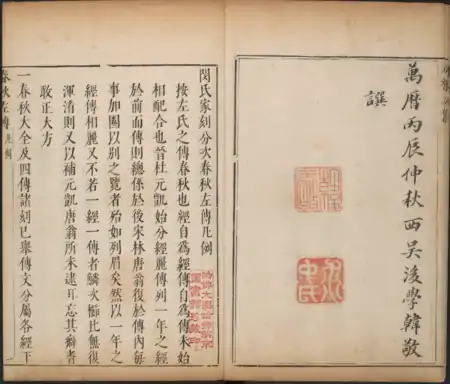 萬曆丙辰仲秋西吳後學韓敬
譔
閔氏家刻分次春秋左傳凡例
按左氏之傳春秋也經自爲經傳自爲傳未始
相配合也晉杜元凱始分經麗傳列一年之經
於前而傳則總係於後宋林唐翁復於傳內每
事加圈以別之覽者殆如列眉矣然以一年之
經傳相麗又不若一經一傳者鱗次櫛比無復
渾淆則又以補元凱唐翁所未逮耳忘其癖者
敢正大方
一春秋大全及四傳諸刻已舉傳文分屬各經下
春秋左傳 凡例